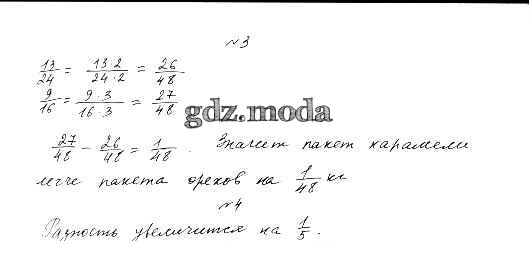 №3
13/24 = 13·2/24·2 = 26/48
9/16 = 9·3/16·3 = 27/48
gdz.moda
27/48 - 26/48 = 1/48. Значит пакет карамели
легче пакета орехов на 1/48 кг
№4
Разность увеличится на 1/5.